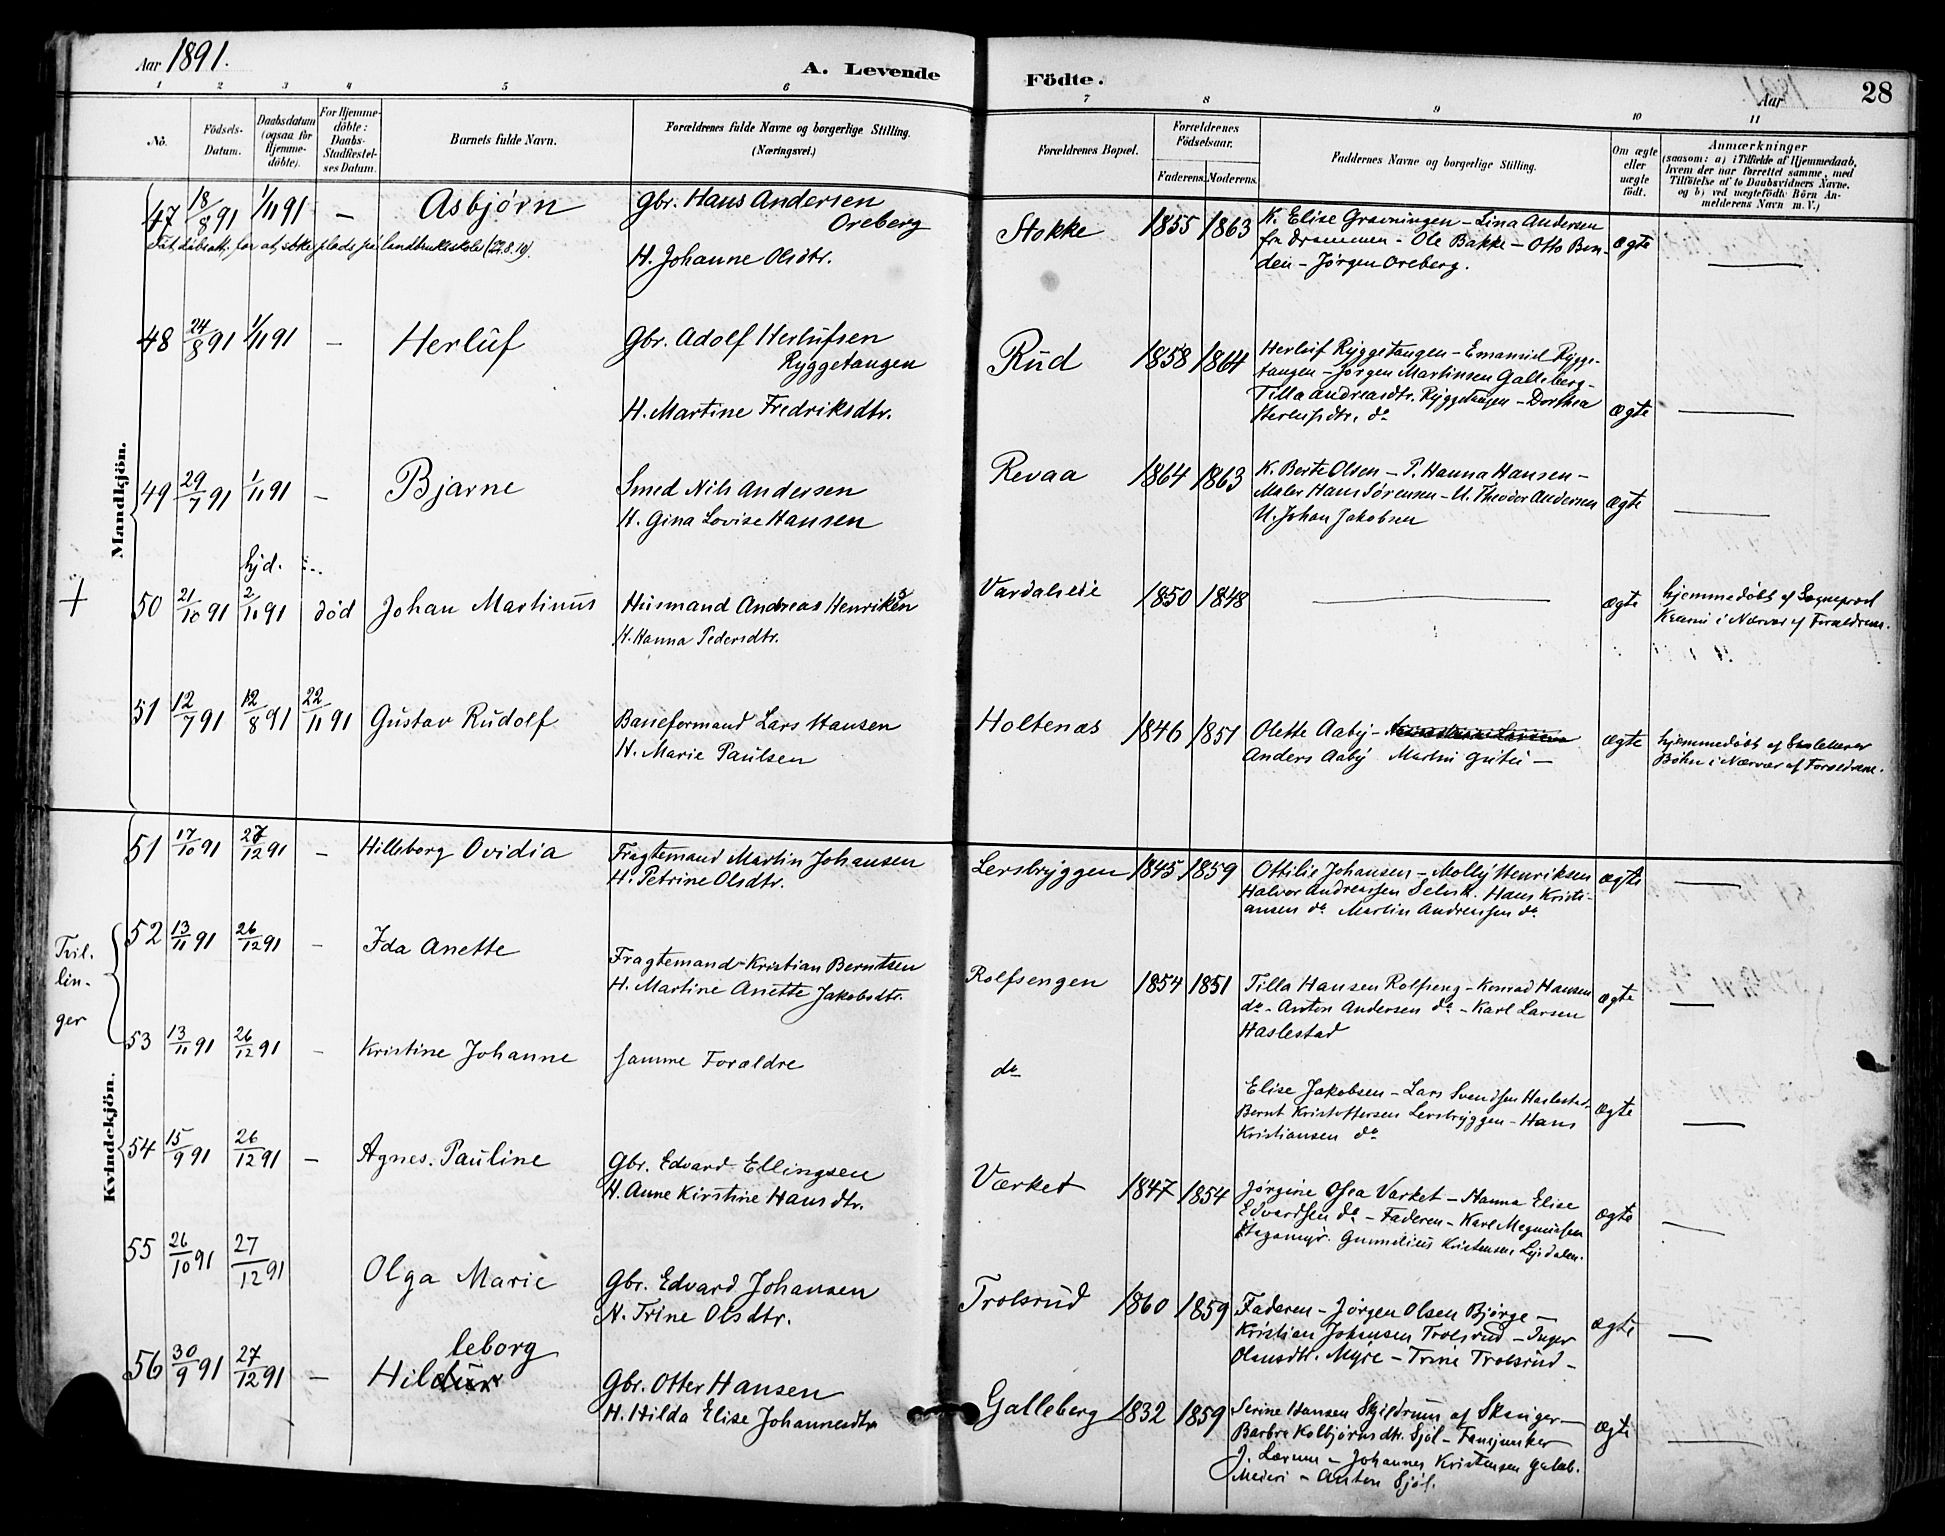 Aar 1891.
A. Levende Födte.
Aar
28
1 2 3 4 5 6 7 8 9 10 11
No.
Födsels-Datum.
Daabsdatum (ogsaa for Hjemme-döbte).
For Hjemme-döbte: Daabs-Stadfæstel-ses Datum.
Barnets fulde Navn.
Forældrenes fulde Navne og borgerlige Stilling. (Næringsvei.)
Forældrenes Bopæl.
Forældrenes Födselsaar.
Faderens. Moderens.
Faddernes Navne og borgerlige Stilling.
Om ægte eller uægte födt.
Anmærkninger
(saasom: a) i Tilfælde af Hjemmedaab, hvem der har forrettet samme, med Tilföielse af to Daabsvidners Navne. og b) ved uægtefödte Börn An-melderens Navn m. V.)
Mandkjön.
47 18/8 91 1/11 91 — Asbjörn
Gbr. Hans Andersen
Oreberg
H. Johanne Olsdtr.
Stokke 1855 1863
K. Elise Gravningen – Lina Andersen
fra Drammen – Ole Bakke – Otto Ben-
den – Jörgen Oreberg.
ægte —
48 24/8 91 1/11 91 — Herluf
Gbr. Adolf Herlufsen
Ryggetangen
H. Martine Fredriksdtr.
Rud 1858 1864
Herluf Ryggetangen – Emanuel Rygge-
tangen – Jörgen Martinsen Galleberg –
Tilla Andreasdtr. Ryggetangen – Dorthea
Herlufsdtr. do
ægte —
49 29/7 91 1/11 91 — Bjarne
Smed Nils Andersen
H. Gina Lovise Hansen
Revaa 1864 1863
K. Berte Olsen – P. Hanna Hansen –
Maler Hans Sörensen – U. Theodor Andersen
U. Johan Jakobsen
ægte —
hjd.
+ 50 21/10 91 2/11 91 död Johan Martinus
Husmand Andreas Henriksen
H. Hanna Pedersdtr.
Vardalseie 1850 1848 —
ægte
hjemmedöbt af Sogneprest
i Nærvær af Forældrene.
51 12/7 91 12/8 91 22/11 91 Gustav Rudolf
Baneformand Lars Hansen
H. Marie Paulsen
Holtenas 1846 1851
Olette Aaby –
Anders Aaby Martin —
ægte
hjemmedöbt af
i Nærvær af Forældrene.
Kvindekjön.
51 17/10 91 27/12 91 — Hilleborg Ovidia
Fragtemand Martin Johansen
H. Petrine Olsdtr.
Lersbryggen 1845 1859
Ottilie Johansen – Molly Henriksen
Halvor Andreassen Selvik. Hans Kristi-
ansen do Martin Andreassen do
ægte —
Tvil.
lin-
ger
52 13/11 91 26/12 91 — Ida Anette
Fragtemand Kristian Berntsen
H. Martine Anette Jakobsdtr.
Rolfsengen 1854 1851
Tilla Hansen Rolfseng – Konrad Hansen
do – Anton Andersen do – Karl Larsen
Haslestad
ægte —
53 13/11 91 26/12 91 — Kristine Johanne
samme Forældre
do
Elise Jakobsen – Lars Svendsen Haslestad –
Bernt Kristoffersen Lersbryggen – Hans
Kristiansen do
ægte —
54 15/9 91 26/12 91 — Agnes. Pauline
Gbr. Edvard Ellingsen
H. Anne Kirstine Hansdtr.
Værket 1847 1854
Jörgine Værket – Hanna Elise
Edvardsen do – Faderen – Karl Magnussen
Kristensen
ægte —
55 26/10 91 27/12 91 Olga Marie
Gbr. Edvard Johansen
H. Trine Olsdtr.
Trolsrud 1860 1859
Faderen – Jörgen Olsen Bjerge –
Kristian Johansen Trolsrud – Inger
Olausdtr. Myre – Trine Trolsrud –
ægte —
leborg
56 30/9 91 27/12 91 — Hildur
Gbr. Otter Hansen
H. Hilda Elise Johannesdtr
Galleberg 1832 1859
Serine Hansen Skjeldrum af Skouger –
Barbra Kolbjörnsdtr. Sjöl – Fanejunker
J. Lærum – Johannes Kristensen Galleb.
Meieri – Anton Sjöl.
ægte —